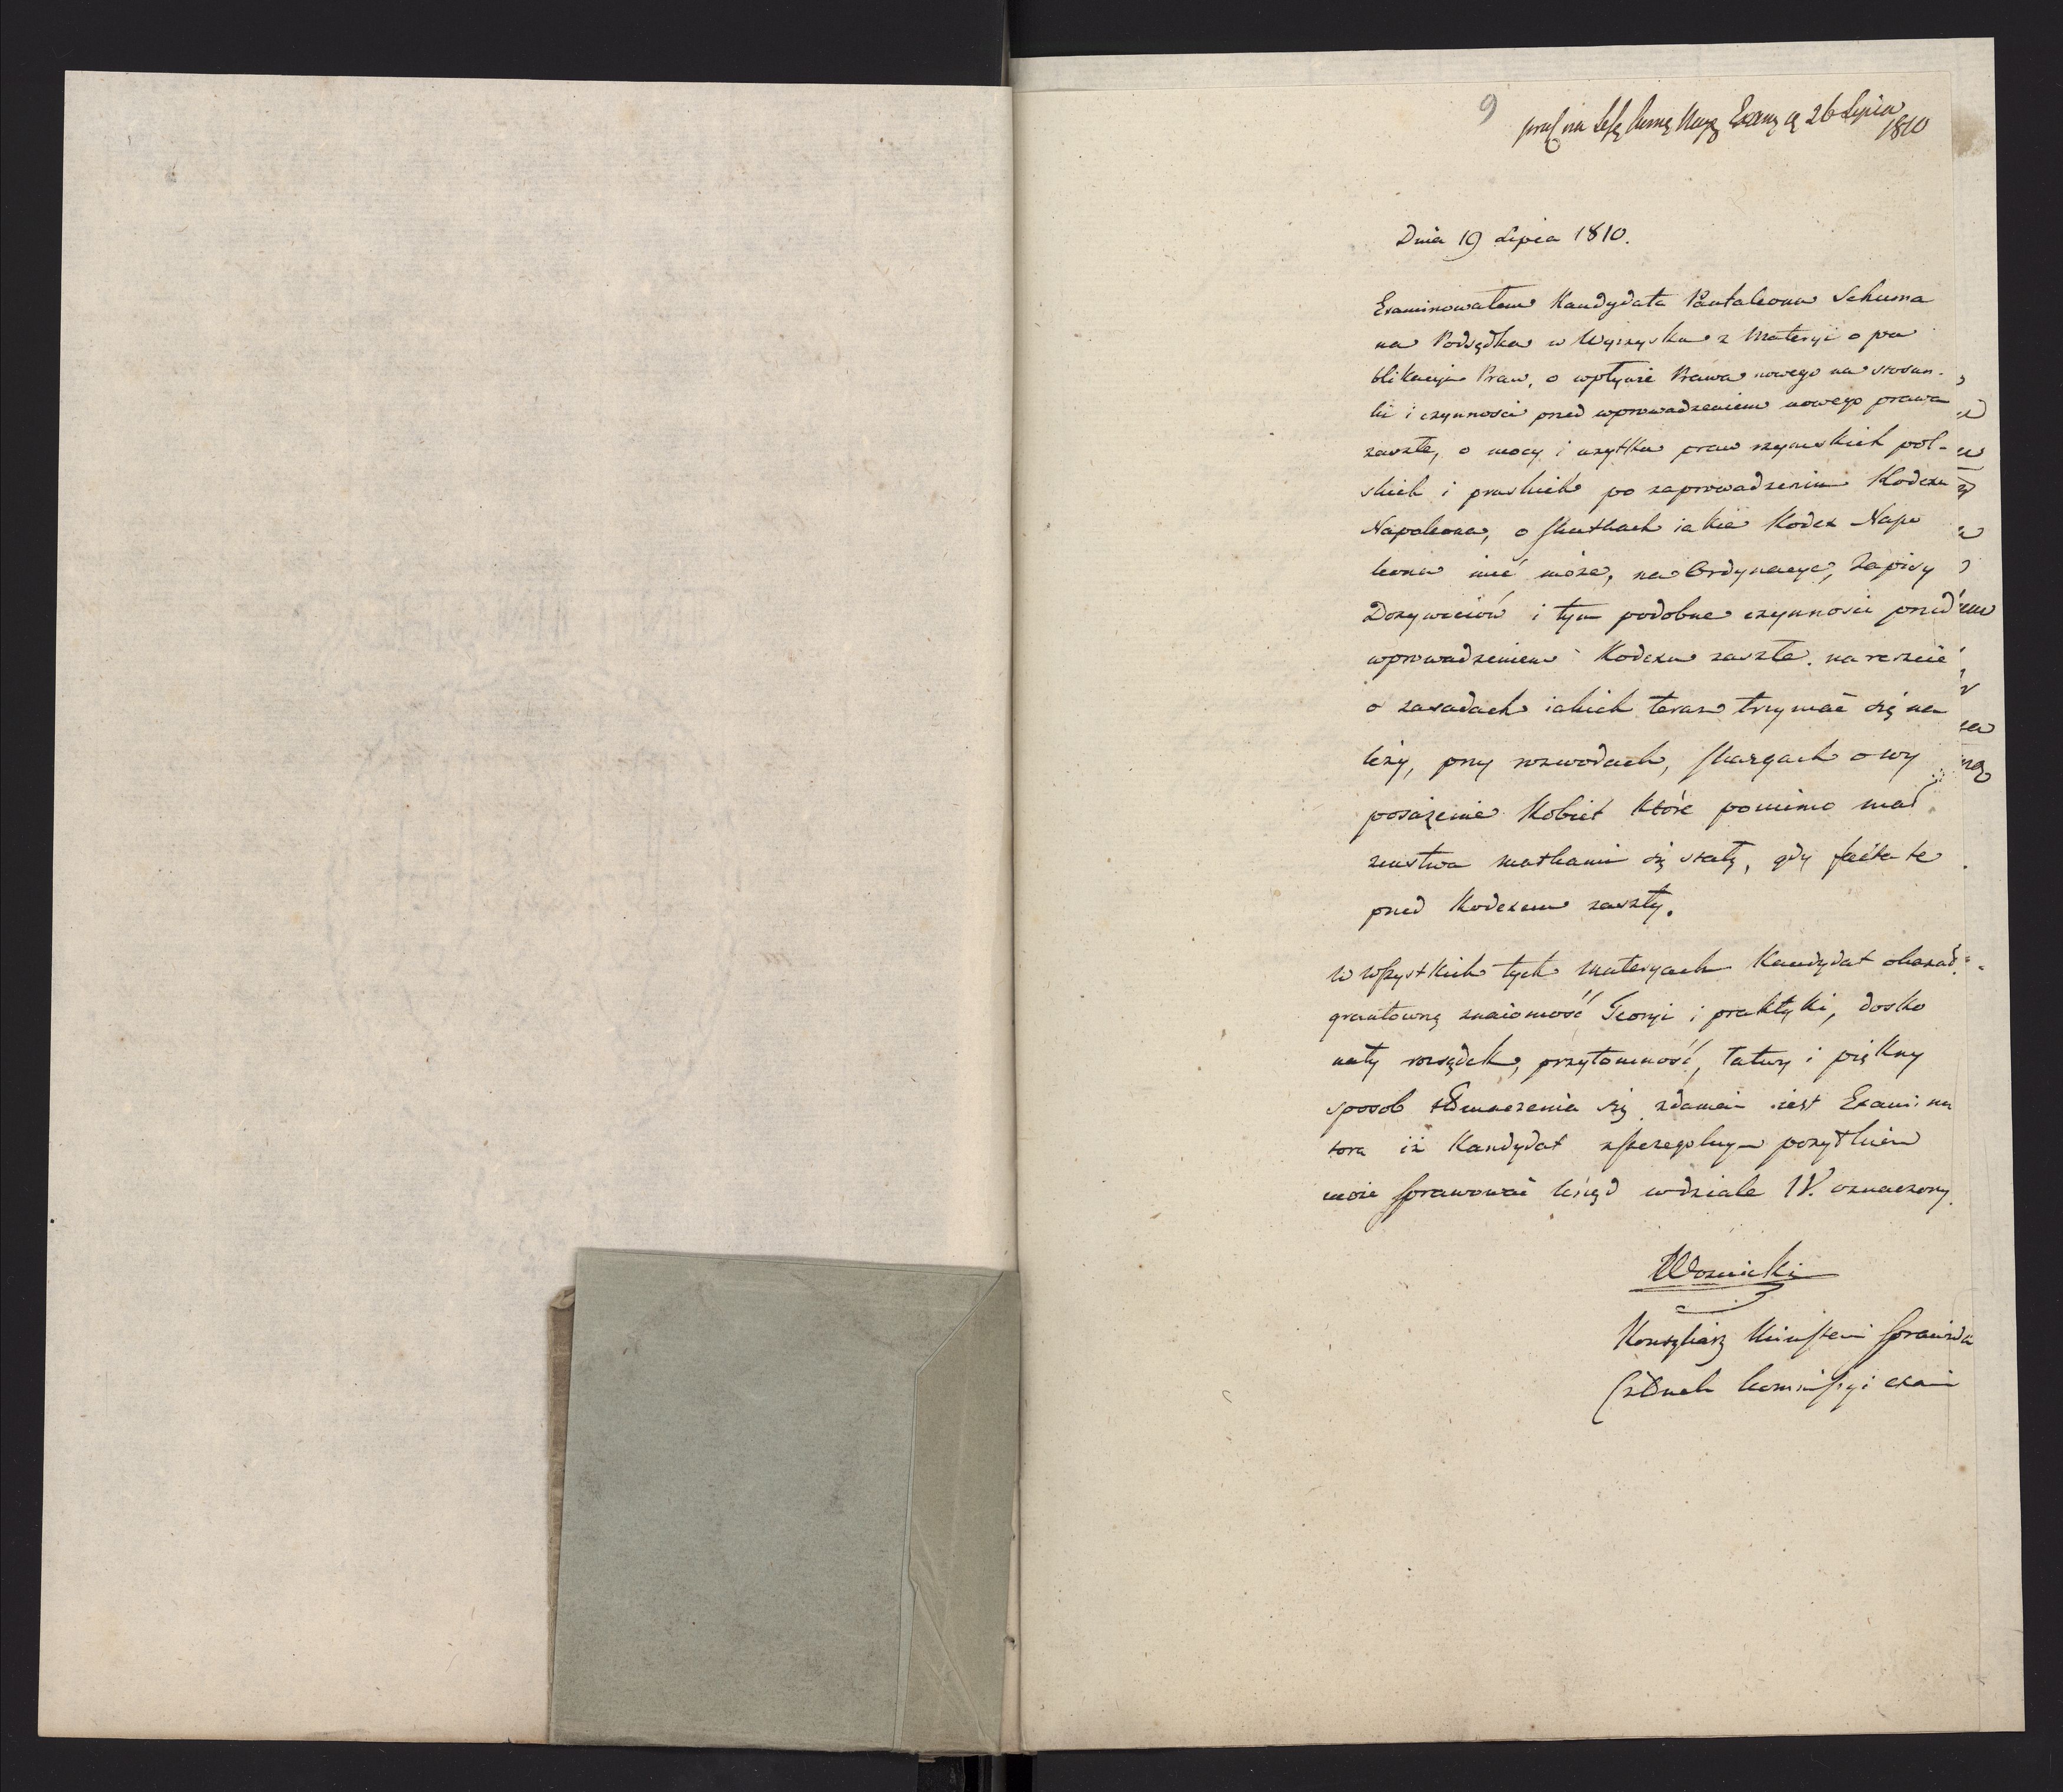 9
na Sessę 26 Lipca
1810
Dnia 19 Lipca 1810.
Examinowałem Kandydata Pantaleona Schuma
na Podsędka w Wyrzysku z Materyi o pu
blikacyi Praw, o wpływie Prawa nowego na stosun-
ki i czynności przed wprowadzeniem nowego prawa
zaszłe, o mocy i użytku praw rzymskich pol-
skich i pruskich po zaprowadzeniu Kodexu
Napoleona, o skutkach iakie Kodex Napo
leona mieć może, na Ordynacye, Zapisy
Dożywociów i tym podobne czynności przed
wprowadzeniem Kodexu zaszłe. nareszcie
o zasadach iakich teraz trzymać się na
leży, przy rozwodach, skargach o wy
posażenie Kobiet które pomimo mał
żeństwa matkami się stały, gdy fakta te
przed Kodexem zaszły.
w wszystkich tych materyach Kandydat okazał
gruntowną znaiomość Teoryi i praktyki, dosko
nały rozsądek, przytomność, łatwy i piękny
sposob tłomaczenia się zdaniem iest Examina
tora iż Kandydat z szczegolnym pożytkiem
może sprawować urząd w dziale IV. oznaczony.
Woznicki
Konsyliarz Ministerii Sprawiedl
Członek kommissyi exami